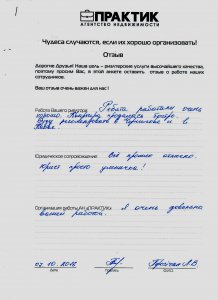 ПРАКТИК
АГЕНТСТВО НЕДВИЖИМОСТИ
Чудеса случаются, если их хорошо организовать!
Отзыв
Дорогие Друзья! Наша цель - риэлтерские услуги высочайшего качества,
поэтому просим Вас, в этой анкете оставить отзыв о работе наших
сотрудников.
Ваш отзыв очень важен для нас!
Работа Вашего риэлтора: Ребята работали очень
хорошо. Квартира продалась быстро.
Буду рекомендовать и
Юридическое сопровождение: Всё прошло отлично.
Юрист просто умничка!
Организация работы АН «ПРАКТИК»: Я очень довольна
вашей работой.
07.10.2016
дата
подпись
фамилия